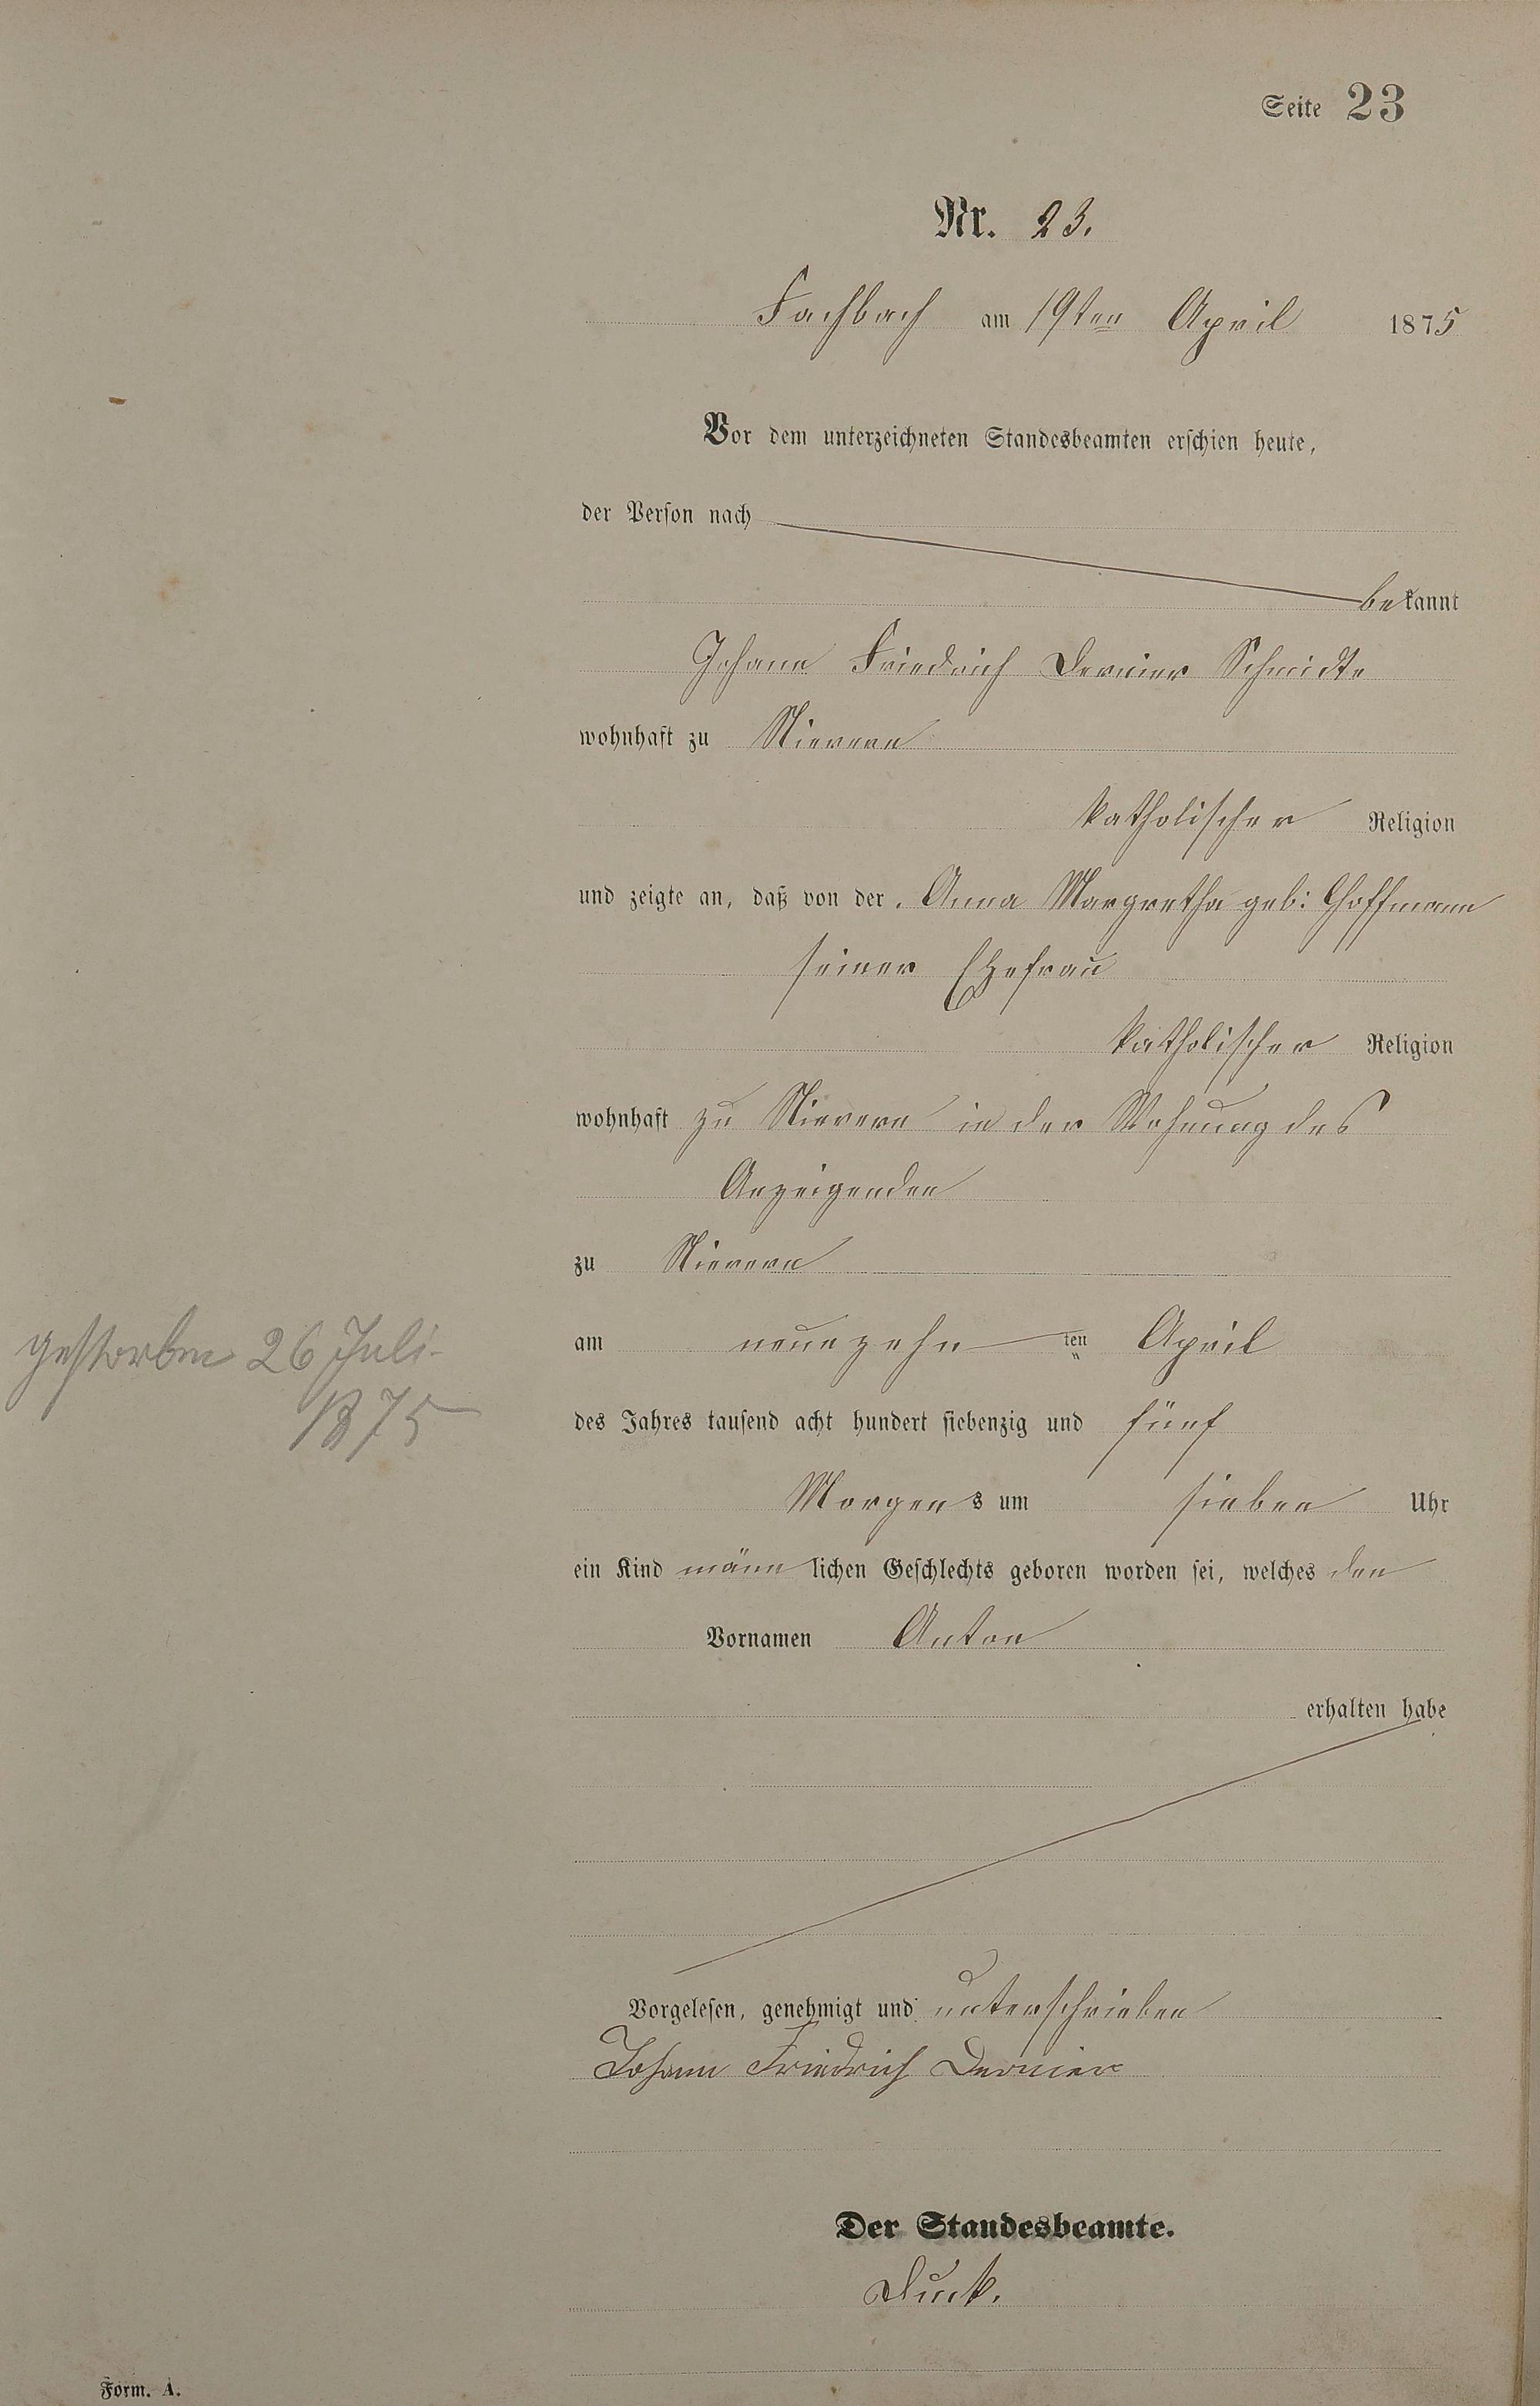 Seite 23
Nr. 23.
Fachbach am 19ten April 1875
Vor dem unterzeichneten Standesbeamten erschien heute,
der Person nach
bekannt
Johann Friedrich Dernier Schmidte
wohnhaft zu Nievern
katholischer Religion
und zeigte an, daß von der Anna Margretha geb: Hoffmann
seiner Ehefrau
katholischer Religion
wohnhaft zu Nievern in der Wohnung des
Anzeigenden
zu Nievern
gestorben 26 Juli
1875
am neunzehn ten April
des Jahres tausend acht hundert siebenzig und fünf
Morgens um sieben Uhr
ein Kind männlichen Geschlechts geboren worden sei, welches den
Vornamen Anton
erhalten habe
Vorgelesen, genehmigt und unterschrieben
Johann Friedrich Dernier
Der Standesbeamte.
Form. A.